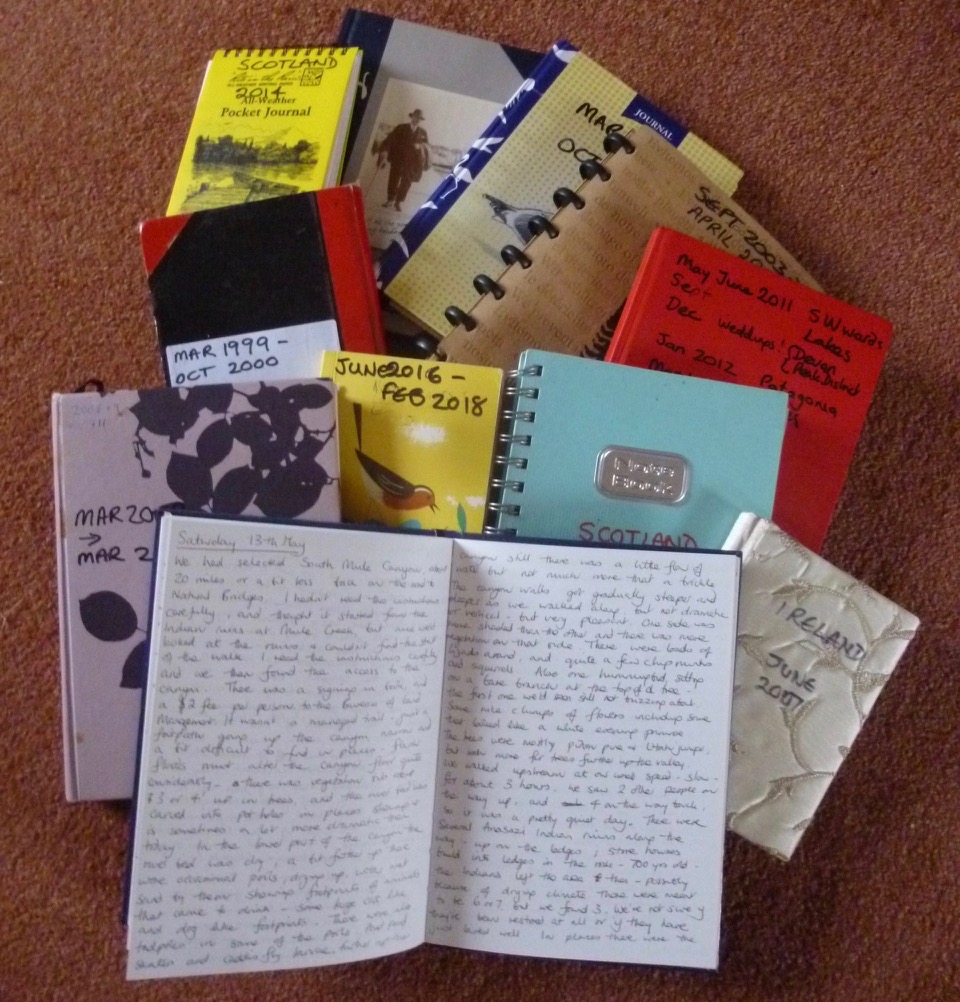 SCOTLAND
2014
All-Weather
Pocket Journal
JOURNAL
MAR
OCT
SEPT 2003
APRIL
MAR 1999 -
OCT 2000
May June 2011 SW wards
Sept Lakes
Dec weddings! Devon
Peak District
Jan 2012 Patagonia
JUNE 2016 -
FEB 2018
Note
Book
SCOTLAND
MAR 20
→
MAR 2
IRELAND
JUNE
2007
Saturday 13th May
We had selected South Mule Canyon about
20 miles or a bit less back on the road to
Natural Bridges. I hadn't read the instructions
carefully, and thought it started from the
Indian ruins at Mule Creek, but once we'd
looked at the ruins & couldn't find the start
of the walk I read the instructions carefully
and we then found the access to the
canyon. There was a signing in box, and
a $2 fee per person to the Bureau of Land
Management. It wasn't a managed trail - just a
footpath going up the canyon, narrow and
a bit difficult to find in places. Flash
floods must alter the canyon floor quite
considerably - there was vegetation
up in trees, and the river bed was
carved into pot holes in places
is sometimes a lot more dramatic than
today. In the lower part of the canyon the
river bed was dry, a bit further up there
were occasional pools, drying up, with
sand by them showing footprints of animals
that came to drink - some huge cat like
and dog like footprints. There were
tadpoles in some of the pools. And pond
skaters and caddis fly larvae. Further up the
canyon still there was a little flow of
water but not much more that a trickle.
The canyon walls got gradually steeper and
deeper as we walked along, but not dramatic
or vertical, but very pleasant. One side was
more shaded than the other and there was more
vegetation on that side. There were loads of
lizards around, and quite a few chipmunks
and squirrels. Also one hummingbird, sat up
on a bare branch at the top of a tree -
the first one we'd seen still not buzzing about.
Some nice clumps of flowers including some
that looked like a white evening primrose.
The trees were mostly piñon pine & Utah juniper,
but with more fir trees further up the valley.
We walked upstream at our usual speed - slow -
for about 3 hours. We saw 2 other people on
the way up, and 4 on the way back,
so it was a pretty quiet day. There were
several Anasazi Indian ruins along the
way, up on the ledges, stone houses
built into ledges in the rock - 700 yrs old -
the Indians left the area then - possibly
because of drying climate. There were meant
to be 6 or 7, but we found 3. We're not sure if
they've been restored at all or if they have
just lasted well. In places there were the